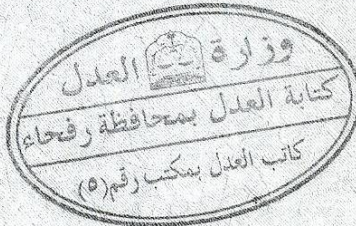 وزارة العدل
كتابة العدل بمحافظة رفحاء
كاتب العدل بمكتب رقم (٥)